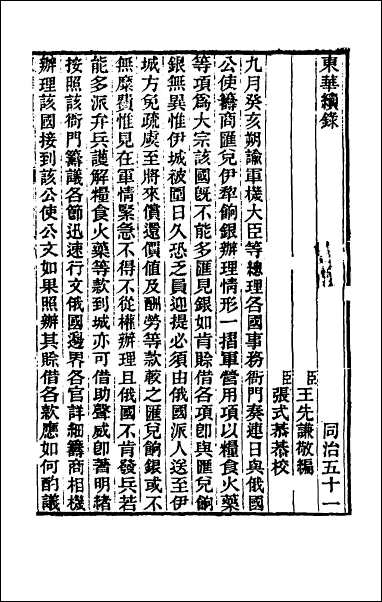 東華續錄　同治五十一
臣王先謙敬編
臣張式恭恭校
九月癸亥朔諭軍機大臣等總理各國事務衙門奏連日與俄國
公使籌商匯兌伊犂餉銀辦理情形一摺軍營用項以糧食火藥
等項為大宗該國旣不能多匯見銀如肯賒借各項卽與匯兌餉
銀無異惟伊城被圍日久恐乏員迎提必須由俄國派人送至伊
城方免疏虞至將來償還價值及酬勞等款較之匯兌餉銀或不
無糜費惟見在軍情緊急不得不從權辦理且俄國不肯發兵若
能多派弁兵護解糧食火藥等款到城亦可借助聲威卽著明緒
按照該衙門籌議各節迅速行文俄國邊界各官詳細籌商相機
辦理該國接到該公使公文如果照辦其賒借各款應如何酌議